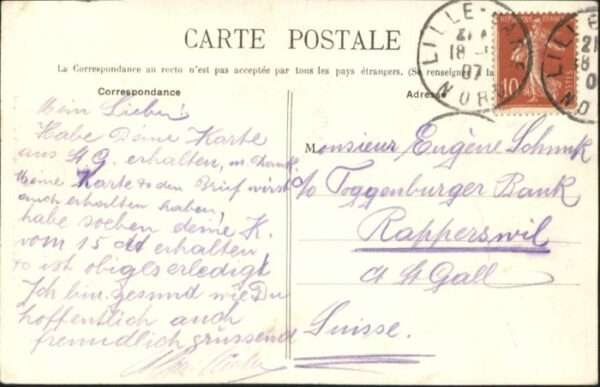 CARTE POSTALE
La Correspondance au recto n'est pas acceptée par tous les pays étrangers. (Se renseigner à la
Correspondance
Adresse
LILLE
18
07
NORD
10
LILLE
21
Mein Lieber!
Habe Deine Karte
aus St G. erhalten, m. Dank
Meine Karte & den Brief wirst
auch erhalten haben,
habe soeben deine K.
vom 15 dt erhalten
& ist obiges erledigt
Ich bin gesund wie Du
hoffentlich auch
freundlich grüssend
Monsieur Eugène Schmuk
c/o Toggenburger Bank
Rapperswil
Ct St Gall
Suisse.